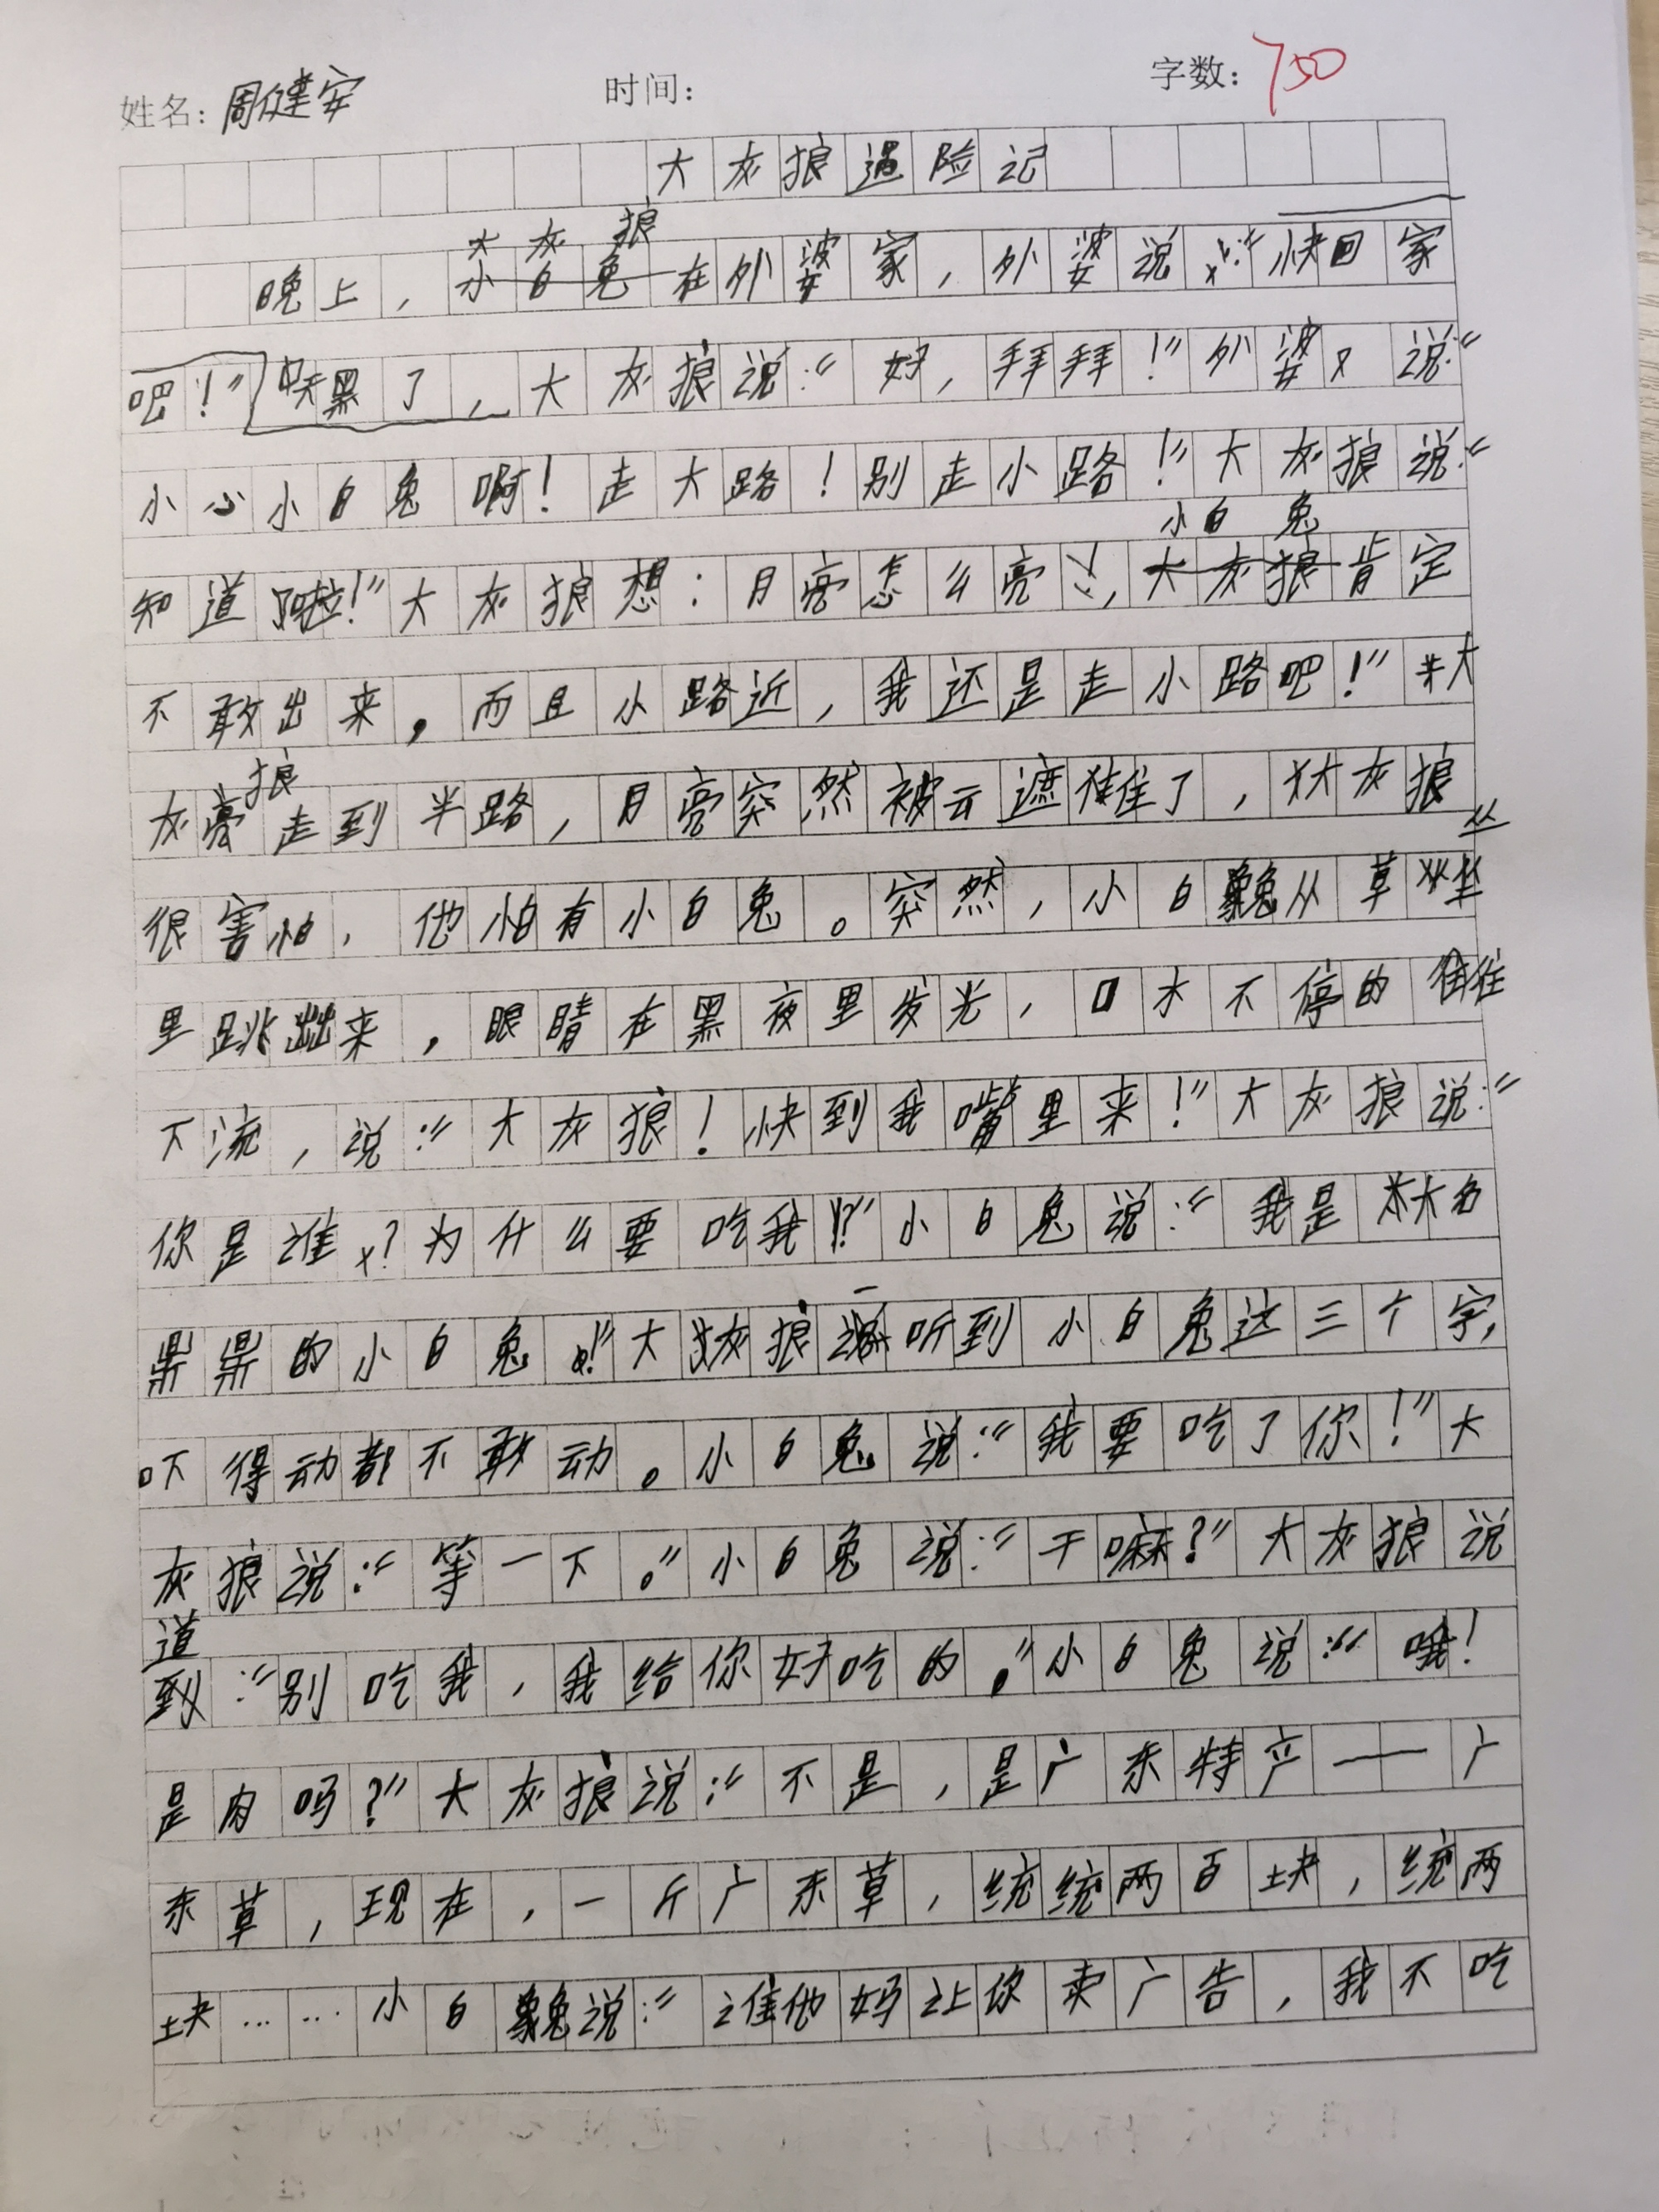 姓名：周健安 时间： 字数：750
大灰狼遇险记
大灰狼
晚上，小白兔在外婆家，外婆说：“快回家
吧！”天黑了，大灰狼说：“好，拜拜！”外婆又说：“
小心小白兔啊！走大路！别走小路！”大灰狼说：“
小白兔
知道啦！”大灰狼想：月亮怎么亮，大灰狼肯定
不敢出来，而且小路近，我还是走小路吧！”大
狼
灰亮走到半路，月亮突然被云遮住了，大灰狼
丛
很害怕，他怕有小白兔。突然，小白兔从草
里跳出来，眼睛在黑夜里发光，口水不停的往
下流，说：“大灰狼！快到我嘴里来！”大灰狼说：“
你是谁？为什么要吃我？”小白兔说：“我是大名
鼎鼎的小白兔！”大灰狼一听到小白兔这三个字，
吓得动都不敢动。小白兔说：“我要吃了你！”大
灰狼说：“等一下。”小白兔说：“干嘛？”大灰狼说
道
到：“别吃我，我给你好吃的。”小白兔说：“哦！
是肉吗？”大灰狼说：“不是，是广东特产——广
东草，现在，一斤广东草，统统两百块，统两
块……小白兔说：“谁他妈让你卖广告，我不吃